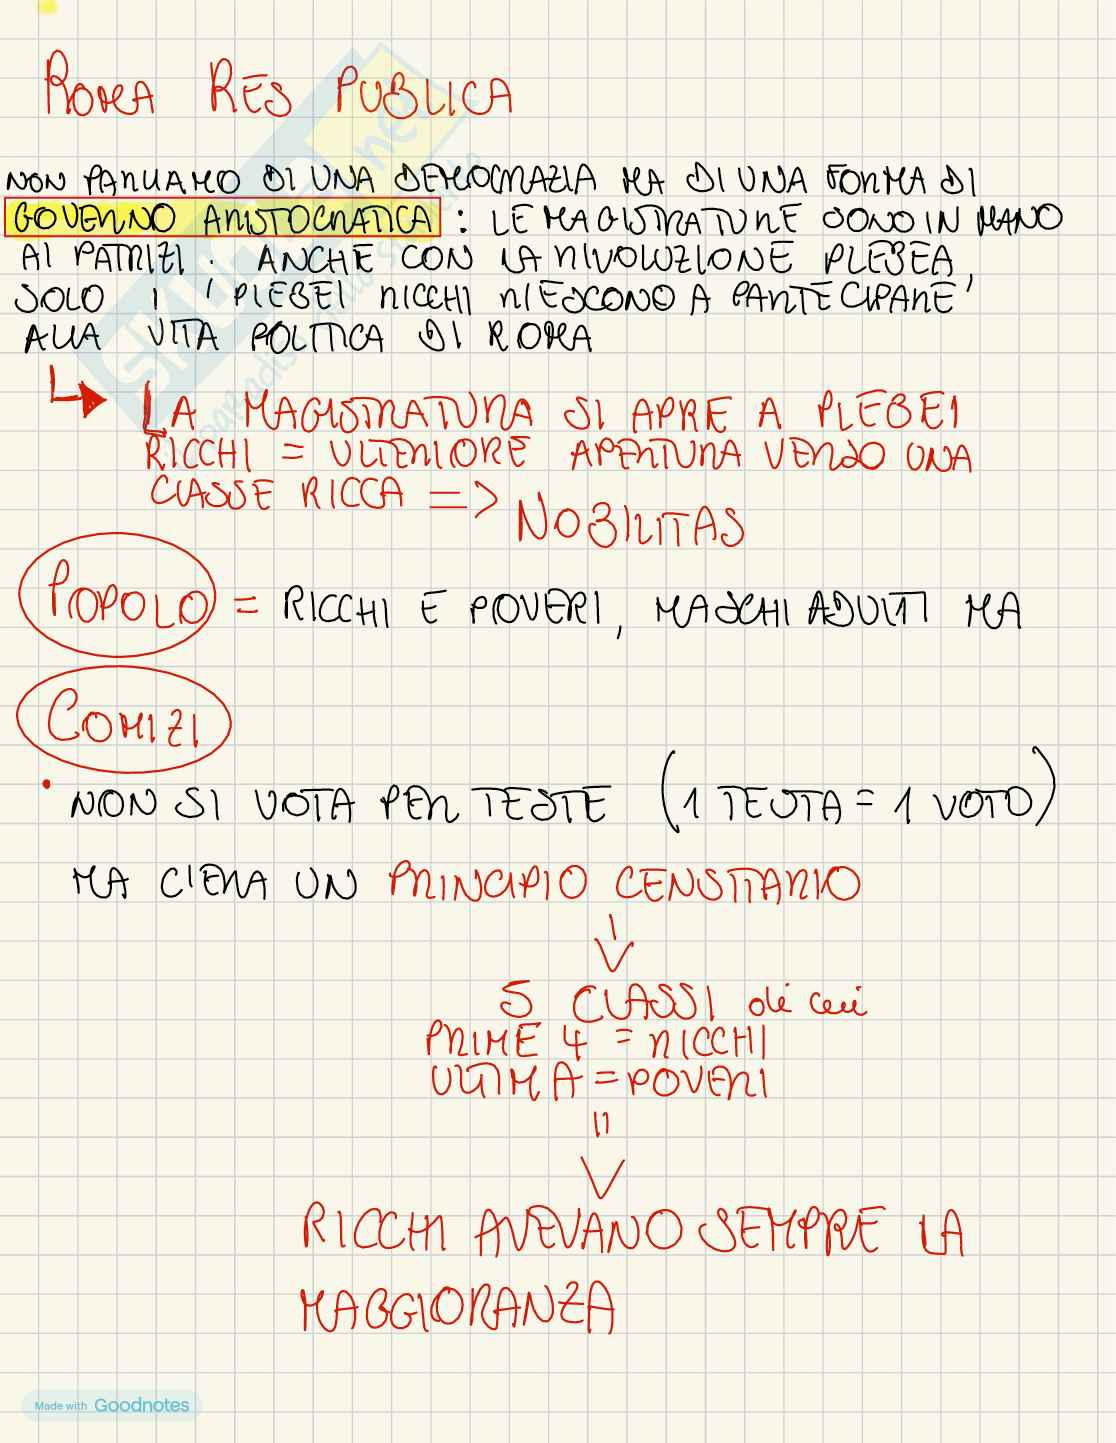 ROMA RES PUBLICA
NON PARLIAMO DI UNA DEMOCRAZIA MA DI UNA FORMA DI
GOVERNO ARISTOCRATICA : LE MAGISTRATURE SONO IN MANO
AI PATRIZI . ANCHE CON LA RIVOLUZIONE PLEBEA,
SOLO I PLEBEI RICCHI RIESCONO A PARTECIPARE
ALLA VITA POLITICA DI ROMA
LA MAGISTRATURA SI APRE A PLEBEI
RICCHI = ULTERIORE APERTURA VERSO UNA
CLASSE RICCA => NOBILITAS
POPOLO = RICCHI E POVERI, MASCHI ADULTI MA
COMIZI
• NON SI VOTA PER TESTE (1 TESTA = 1 VOTO)
MA C'ERA UN PRINCIPIO CENSITARIO
5 CLASSI di cui
PRIME 4 = RICCHI
ULTIMA = POVERI
RICCHI AVEVANO SEMPRE LA
MAGGIORANZA
Made with Goodnotes